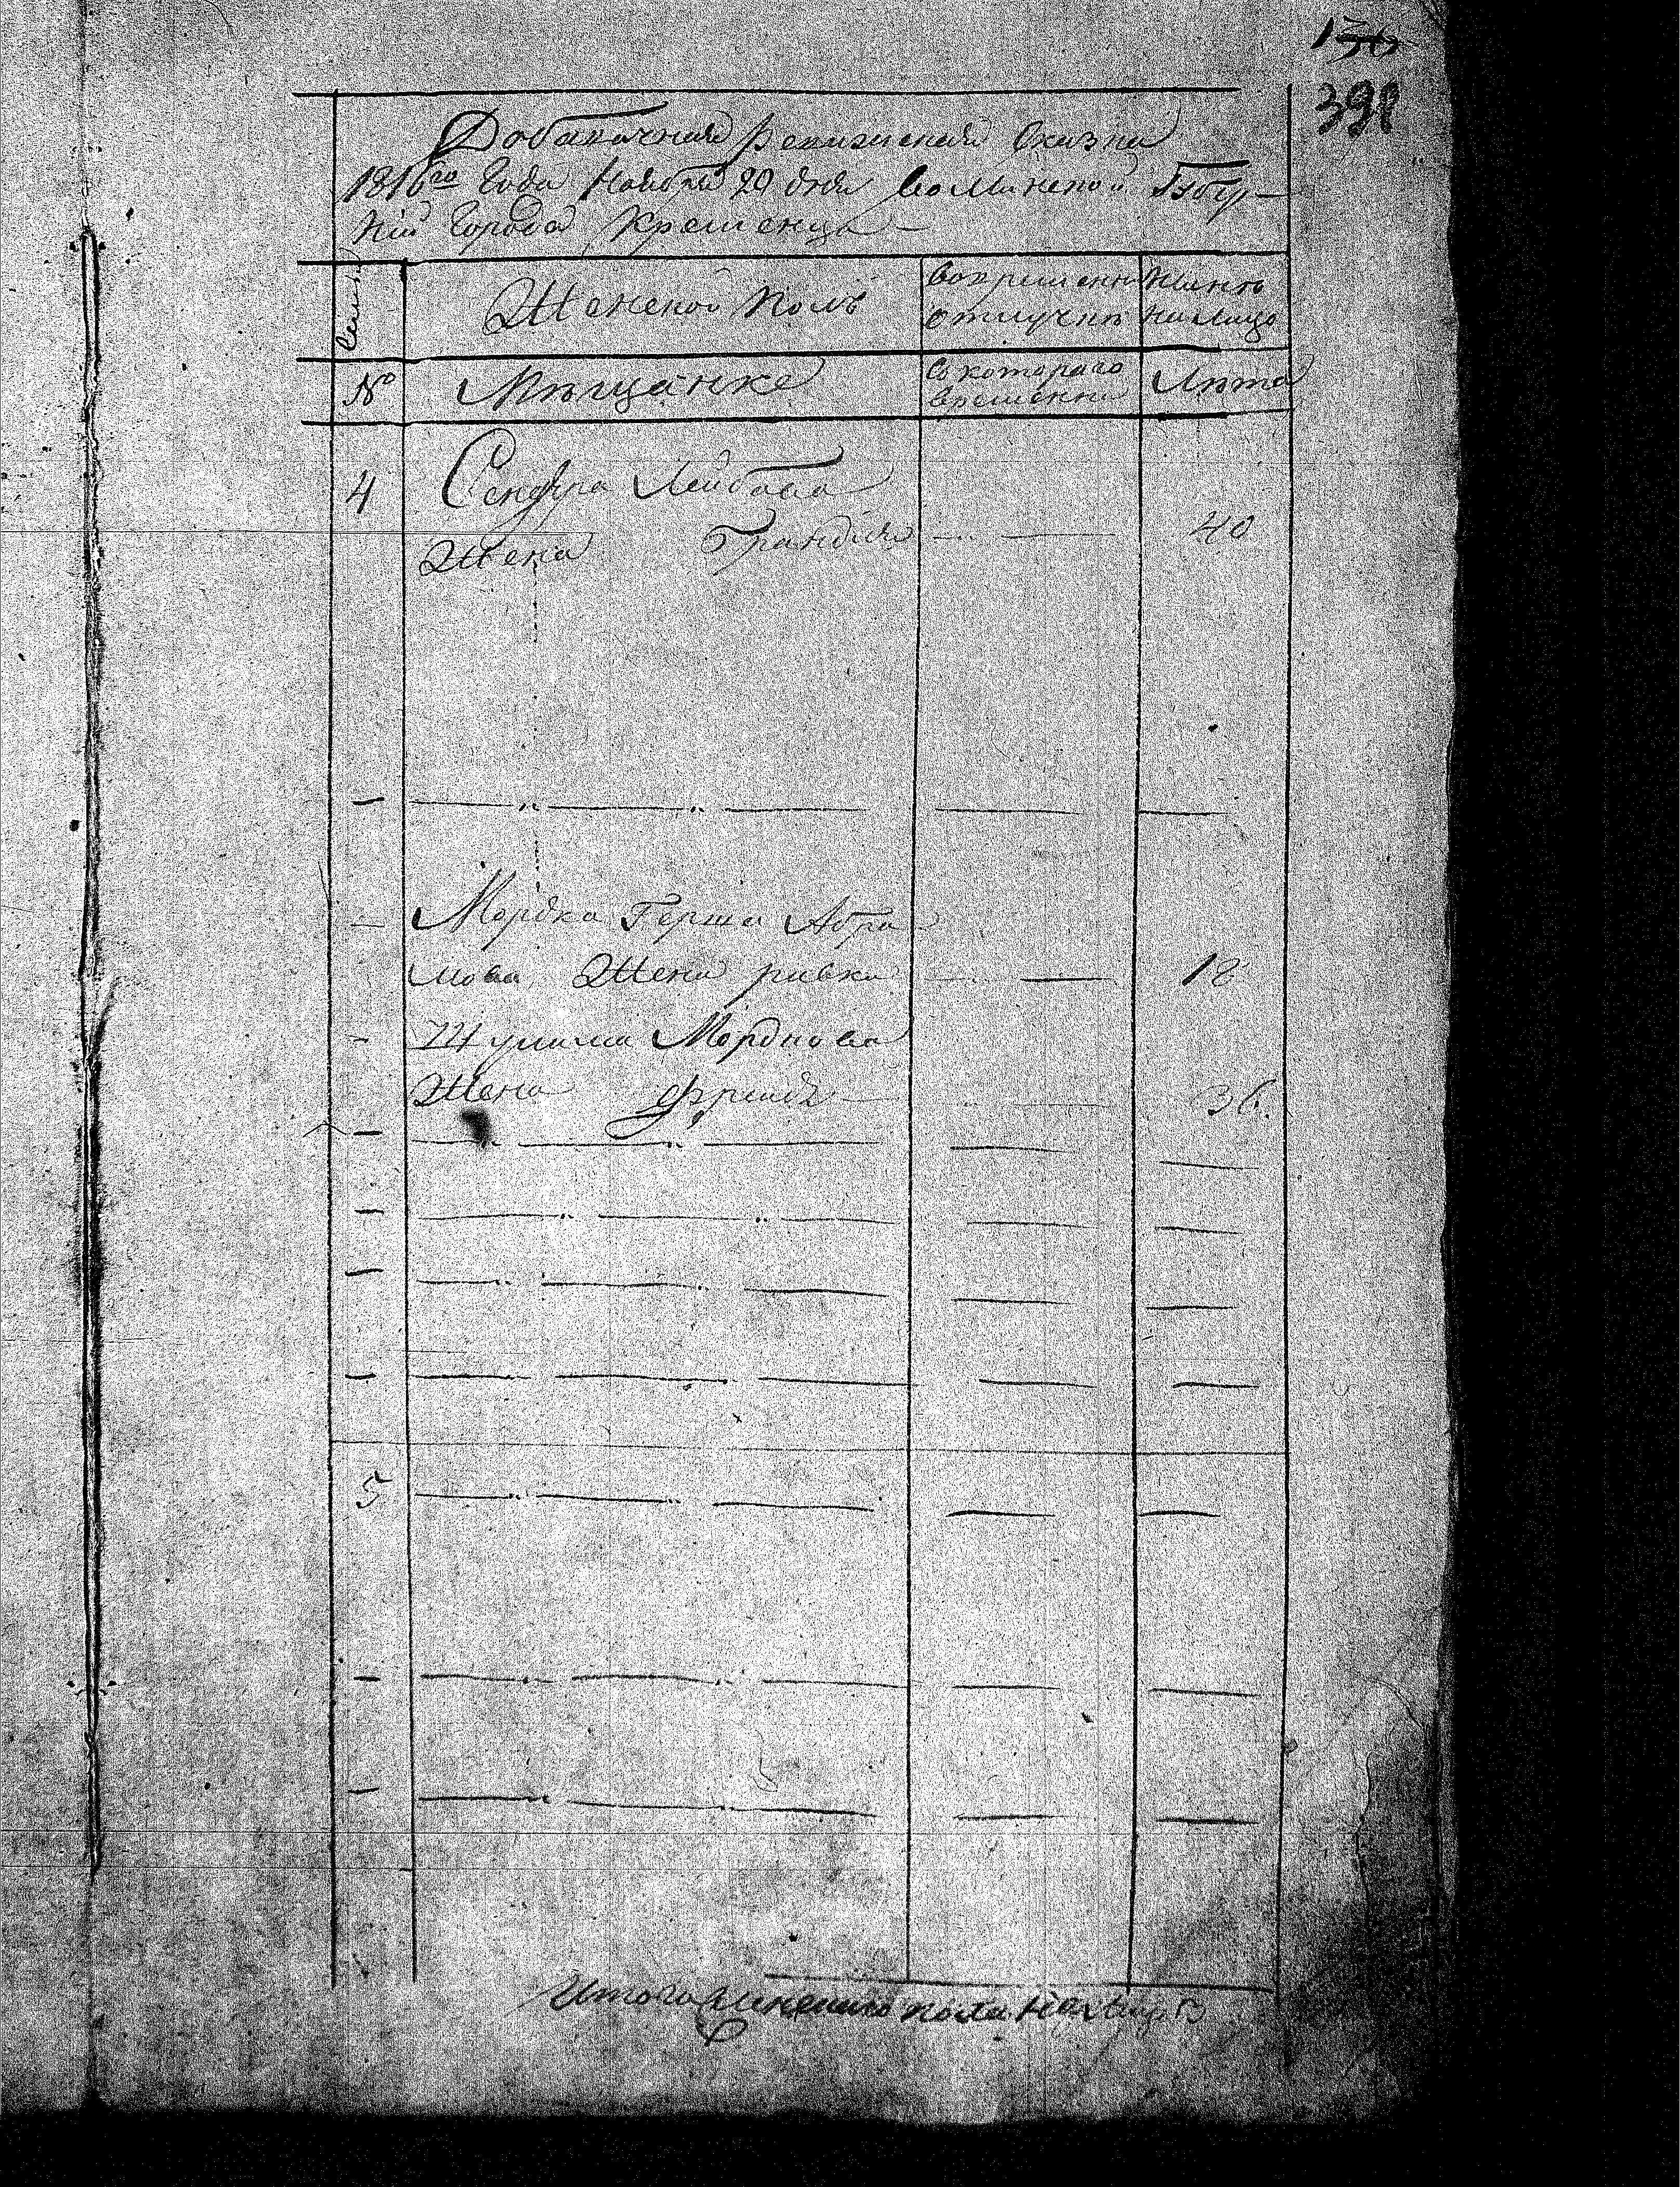 398
Добавочная Ревизская Сказка
1816го Года Ноября 20 дня Волынской Губер-
нии Города Кременца
Семьи
Женской Полъ
во временной отлучкѣ
Нынѣ на лицо
№
Мѣщанке
Съ котораго времени
Лѣта
4
Сендера Лейбова
Жена Брандля 40
Мордка Герша Абра
мова Жена ривка 18
Шулима Мордкова
Жена Фрейда 36.
5
Итого женскаго пола на лицо 3